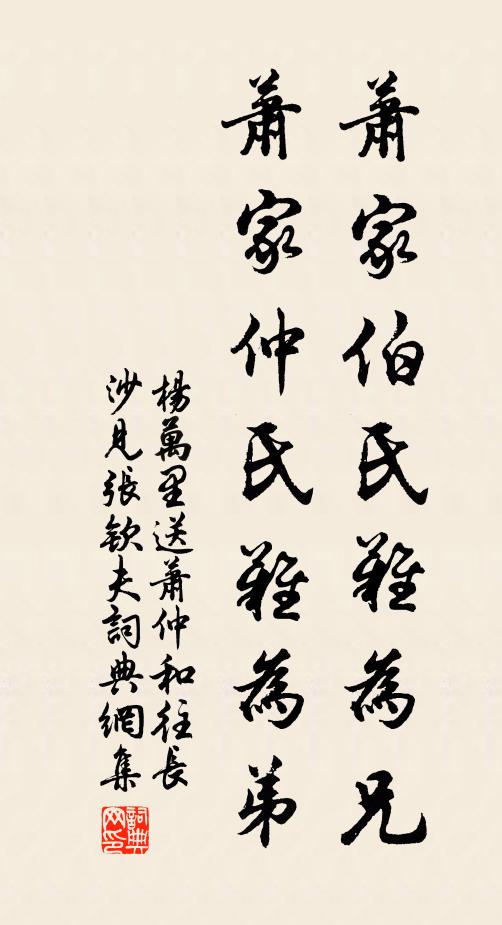 蕭家伯氏難為兄
蕭家仲氏難為弟
楊萬里送蕭仲和往長
沙見張欽夫詞典網集
詞典網印